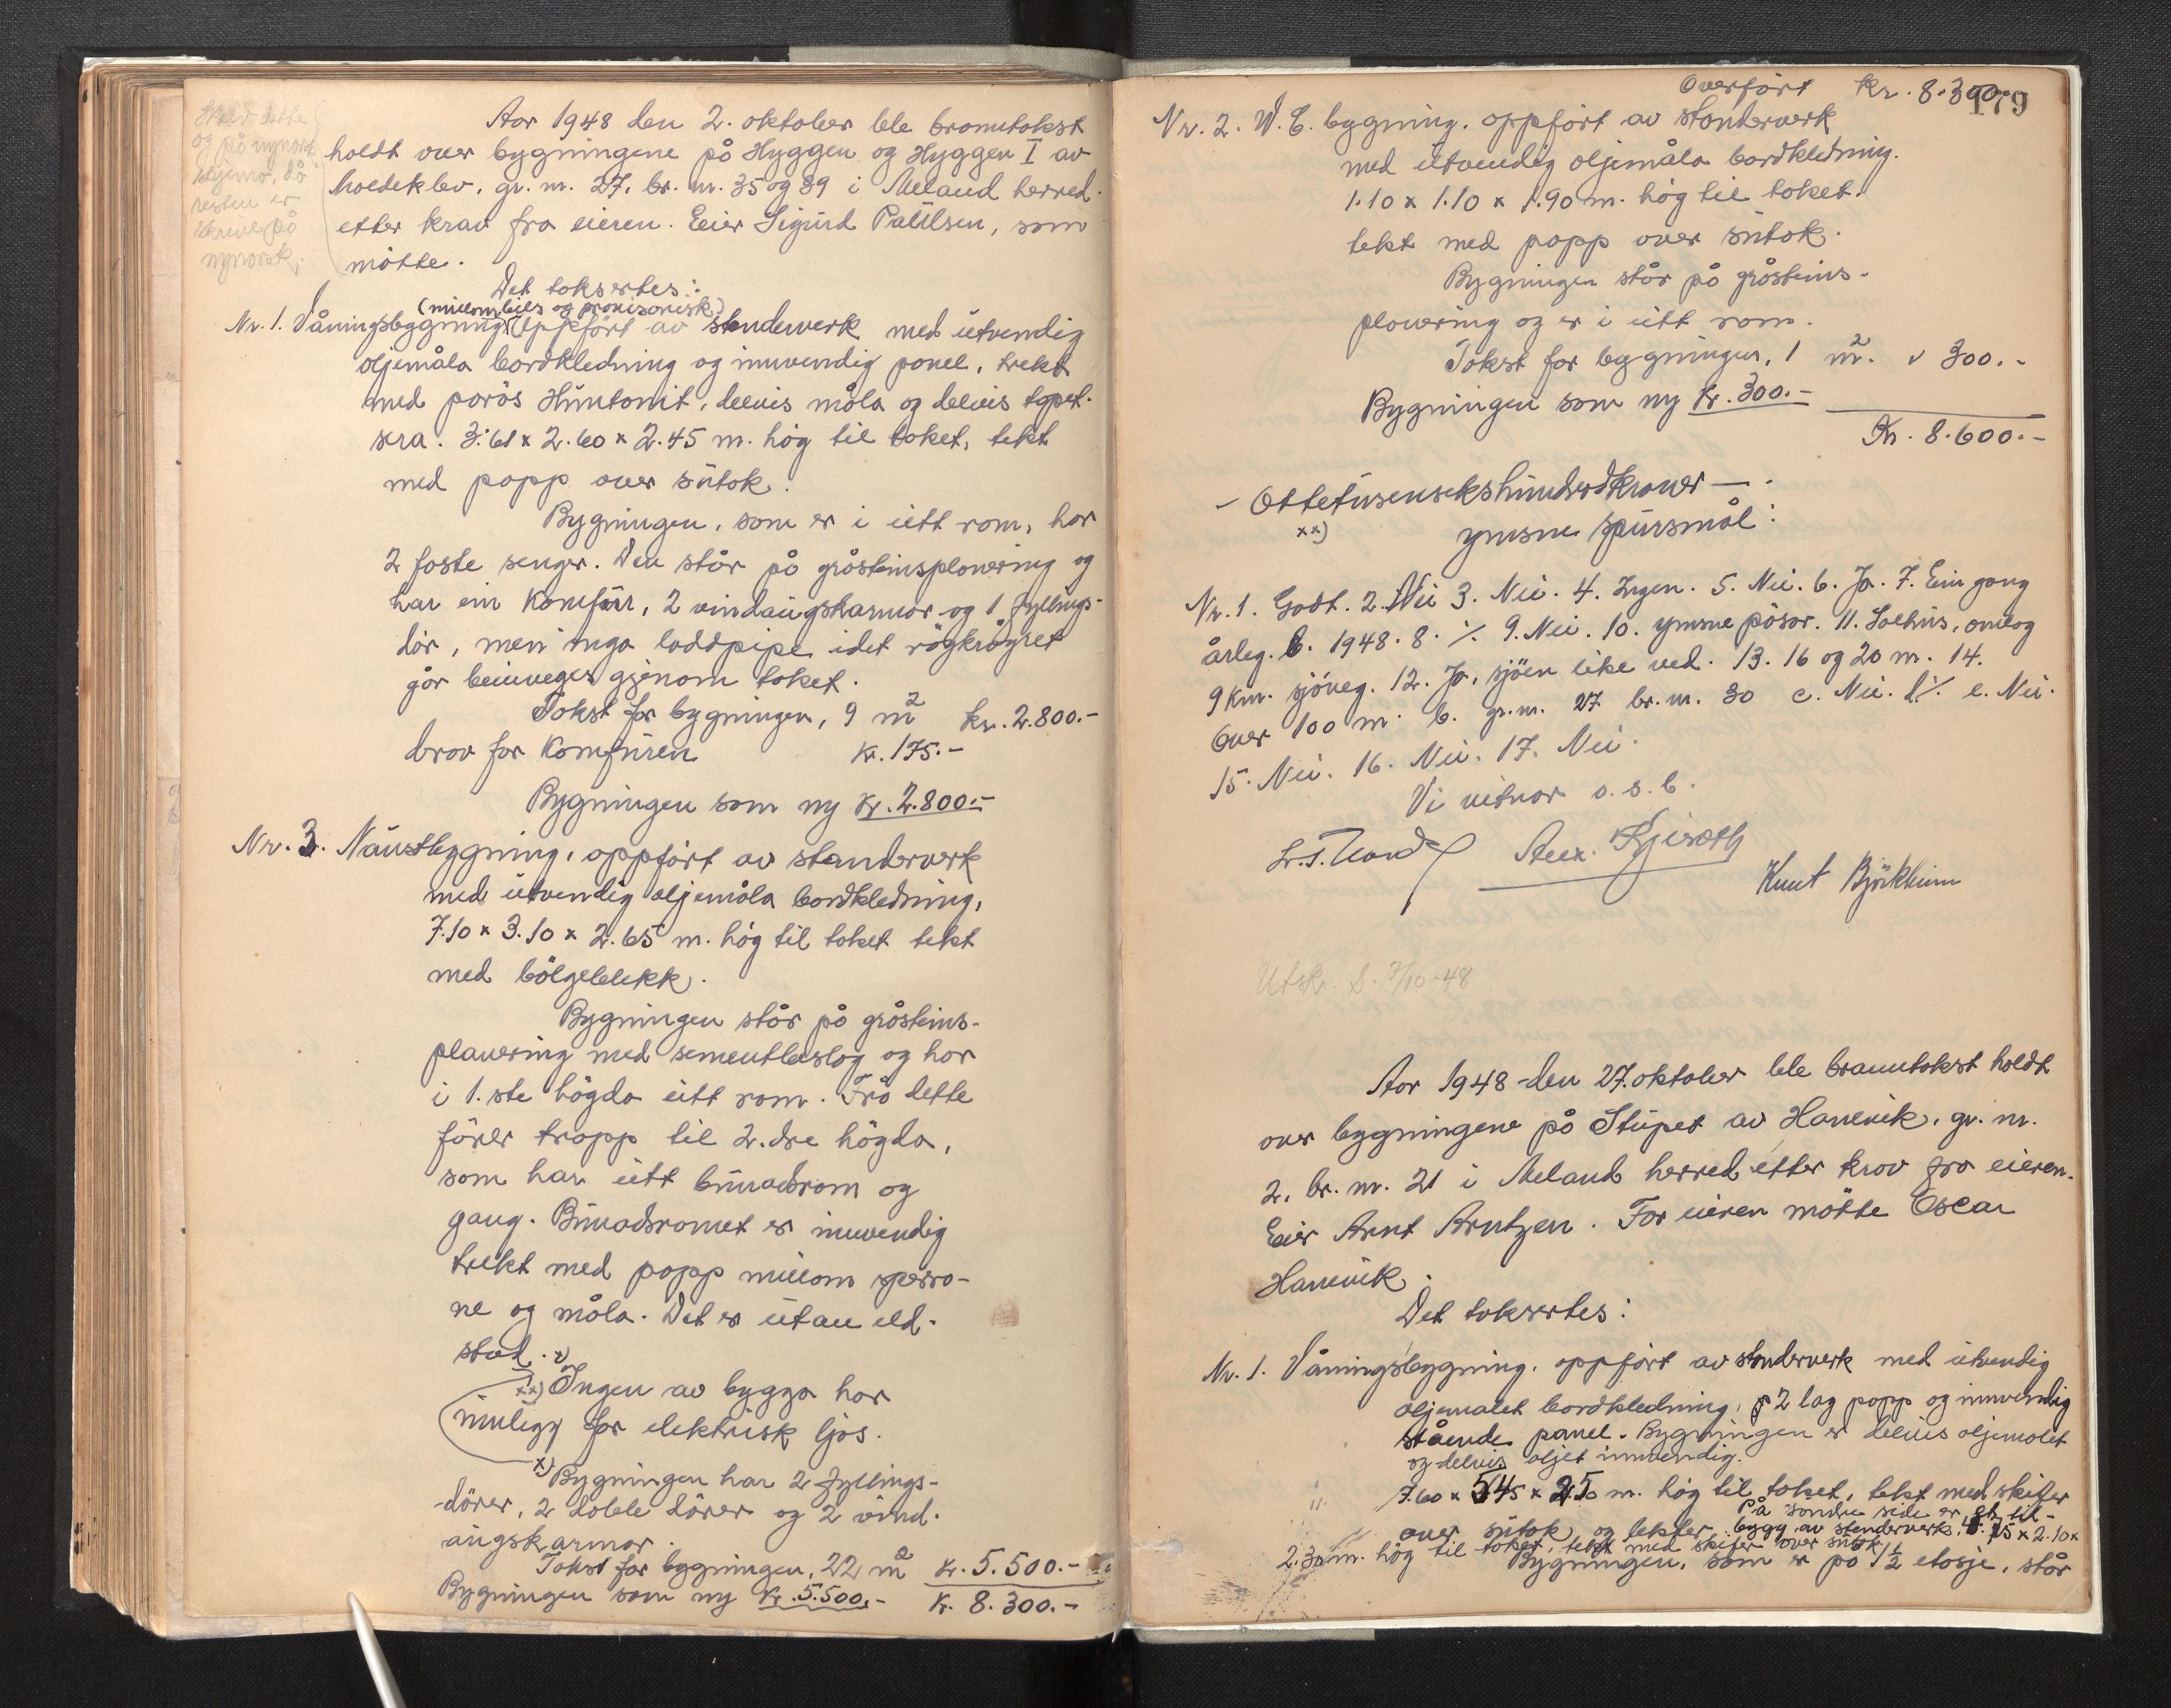 Aar 1948 den 2. oktober ble branntakst
holdt over bygningene på Hyggen og Hyggen I av
Moldeklev, gr. nr. 27, br. nr. 35 og 39 i Meland herred
etter krav fra eieren. Eier Sigurd Paulsen, som
møtte.
og på nynorsk
resten er
skrive på
nynorsk.
Det takseres:
(millombils og provisorisk)
Nr. 1. Våningsbygning, oppført av stenderverk med utvendig
oljemåla bordkledning og innvendig panel, trekt
med porøs Huntonit, delvis måla og delvis tapet-
sera. 3.61 x 2.60 x 2.45 m. høg til taket, tekt
med papp over sutak.
Bygningen, som er i eitt rom, har
2 faste senger. Den står på gråsteinsplanering og
har ein Komfur, 2 vindaugskarmar og 1 fyllings-
dør, men inga loddpipe idet røgkrøyret
går beinveges gjenom taket.
Takst for bygningen, 9 m² kr. 2.800.-
Herav for Komfuren kr. 175.-
Bygningen som ny kr. 2.800.-
Nr. 3. Naustbygning, oppført av stenderverk
med utvendig oljemåla bordkledning,
7.10 x 3.10 x 2.65 m. høg til taket tekt
med bølgeblekk.
Bygningen står på gråsteins-
planering med sementbeslag og har
i 1.ste høgda eitt rom. Frå dette
fører trapp til 2.dre høgda,
som har eitt bunadsrom og
gang. Bunadsromet er innvendig
trekt med papp millom sperra-
ne og måla. Det er utan eld-
stad. x)
xx) Ingen av bygga har
innlegg for elektrisk ljos.
x) Bygningen har 2 fyllings-
dører, 2 doble dører og 2 vind-
augskarmar.
Takst for bygningen, 22 m² kr. 5.500.-
Bygningen som ny kr. 5.500.- kr. 8.300.-
179
Overført kr. 8.300.-
Nr. 2. W.C. bygning, oppført av stenderverk
med utvendig oljemåla bordkledning.
1.10 x 1.10 x 1.90 m. høg til taket,
tekt med papp over sutak.
Bygningen står på gråsteins-
planering og er i eitt rom.
Takst for bygningen, 1 m². " 300.-
Bygningen som ny kr. 300.-
Kr. 8.600.-
- Ottetusensekshundredkroner -
xx) ymsne spursmål:
Nr. 1. Godt. 2. Nei 3. Nei. 4. Ingen. 5. Nei. 6. Ja. 7. Ein gang
årleg. b. 1948. 8. ÷ 9. Nei. 10. ymsne påsar. 11. Solhus, omlag
9 km. sjøveg. 12. Ja, sjøen like ved. 13. 16 og 20 m. 14.
Over 100 m. b. gr. nr. 27 br. nr. 30 c. Nei. d ÷ e. Nei.
15. Nei. 16. Nei. 17. Nei.
Vi vitnar o. s. b.
Knut Björkheim
Utskr. S. 7/10-48
Aar 1948 den 27. oktober ble branntakst holdt
over bygningene på Stupet av Hanevik, gr. nr.
2, br. nr. 21 i Meland herred etter krav fra eieren.
Eier Arnt Arntzen. For eieren møtte Oscar
Hanevik.
Det takseres:
Nr. 1. Våningsbygning, oppført av stenderverk med utvendig
oljemalet bordkledning, 2 lag papp og innvendig
stående panel. Bygningen er delvis oljemalet
og delvis oljet innvendig.
7.60 x 5.45 x 2.50 m. høg til taket, tekt med skifer
over sutak og lekter. På søndre side er et til-
bygg av stenderverk, 4.75 x 2.10 x
2.30 m. høg til taket, tekt med skifer over sutak.
Bygningen, som er på 1½ etasje, står